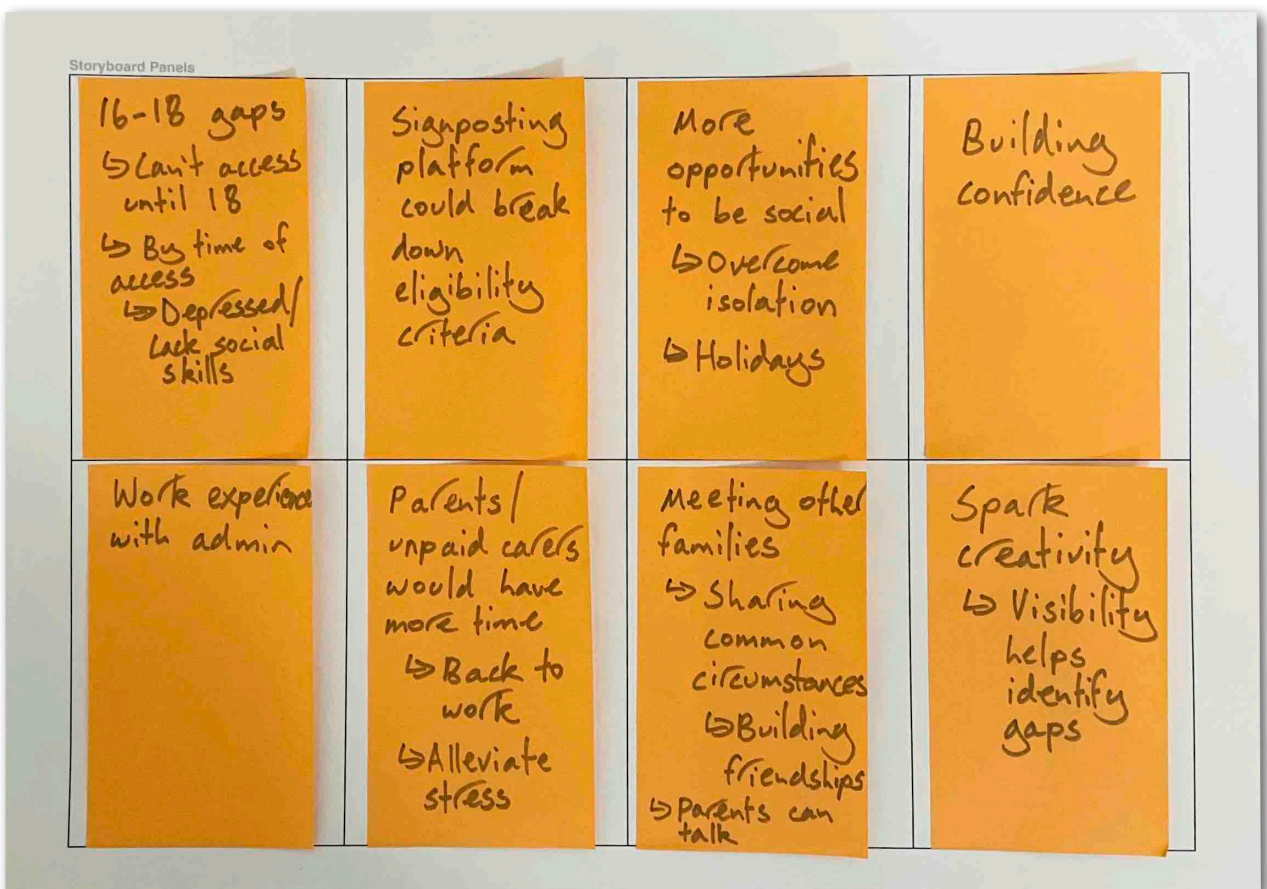 Storyboard Panels
16-18 gaps
↳ Can't access
until 18
↳ By time of
access
↳ Depressed/
Lack social
skills
Signposting
platform
could break
down
eligibility
criteria
More
opportunities
to be social
↳ Overcome
isolation
↳ Holidays
Building
confidence
Work experience
with admin
Parents/
unpaid carers
would have
more time
↳ Back to
work
↳ Alleviate
stress
Meeting other
families
↳ Sharing
common
circumstances
↳ Building
friendships
↳ Parents can
talk
Spark
creativity
↳ Visibility
helps
identify
gaps